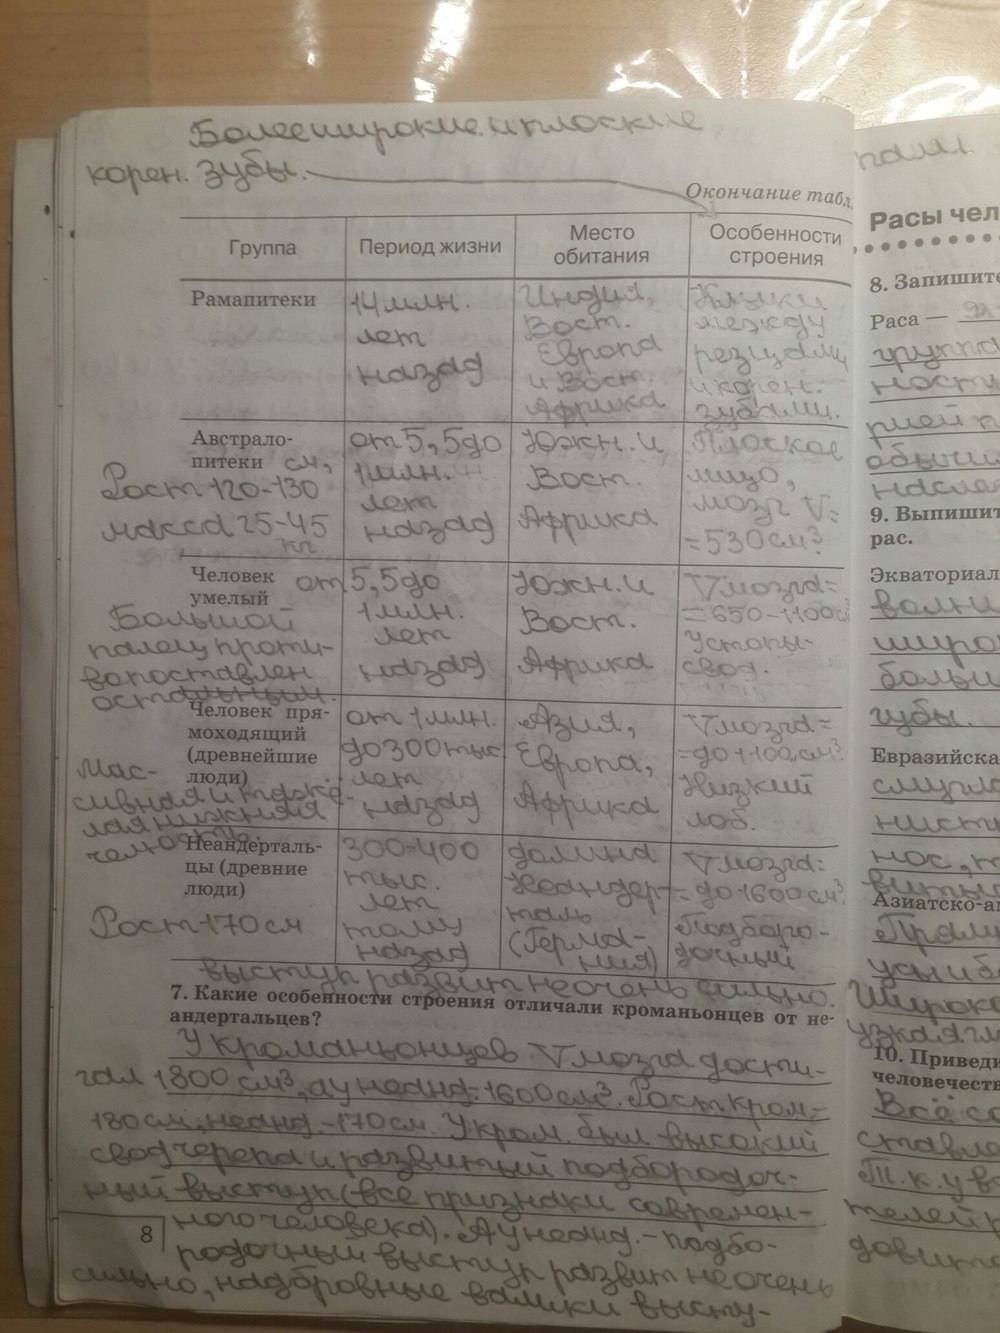 Более широкие и плоские
корен. зубы.
Окончание табл.
Группа
Период жизни
Место
обитания
Особенности
строения
Рамапитеки
14 млн.
лет
назад
Индия,
Вост.
Европа
и Вост.
Африка
Клыки
между
резцами
и корен.
зубами.
Австрало-
питеки см,
Рост 120-130
масса 25-45
кг
от 5,5 до
1 млн.
лет
назад
Южн. и
Вост.
Африка
Плоское
лицо,
мозг V=
=530 см³.
Человек
умелый
Большой
палец проти-
вопоставлен
остальным.
от 5,5 до
1 млн.
лет
назад
Южн. и
Вост.
Африка
V мозга=
=650-1100 см³
Устопы-
свод.
Человек пря-
моходящий
(древнейшие
люди)
Мас-
сивная и тяжё-
лая нижняя
челюсть.
от 1 млн.
до 300 тыс.
лет
назад
Азия,
Европа,
Африка
V мозга=
=до 1100 см³.
Низкий
лоб.
Неандерталь-
цы (древние
люди)
Рост 170 см
300-400
тыс.
лет
тому
назад
долина
Неандер-
таль
(Герма-
ния)
V мозга=
=до 1600 см³.
Подборо-
дочный
выступ развит не очень сильно.
7. Какие особенности строения отличали кроманьонцев от не-
андертальцев?
У кроманьонцев V мозга дости-
гал 1800 см³, а у неанд.=1600 см³. Рост кром=
180 см, неанд.-170 см. У кром. был высокий
свод черепа и развитый подбородоч-
ный выступ (все признаки современ-
ного человека). А у неанд.-подбо-
родочный выступ развит не очень
сильно, надбровные валики высту-
8
Расы чел
8. Запишите
Раса —
группа
ност
рией
обычи
насле
9. Выпишит
рас.
Экваториал
волни
широ
больш
губы.
Евразийска
смугла
нист
нос,
Азиатско-ам
Прям
усы и б
Широко
узкая
10. Приведи
человечеств
Всё со
ставле
Т.к. у в
телей